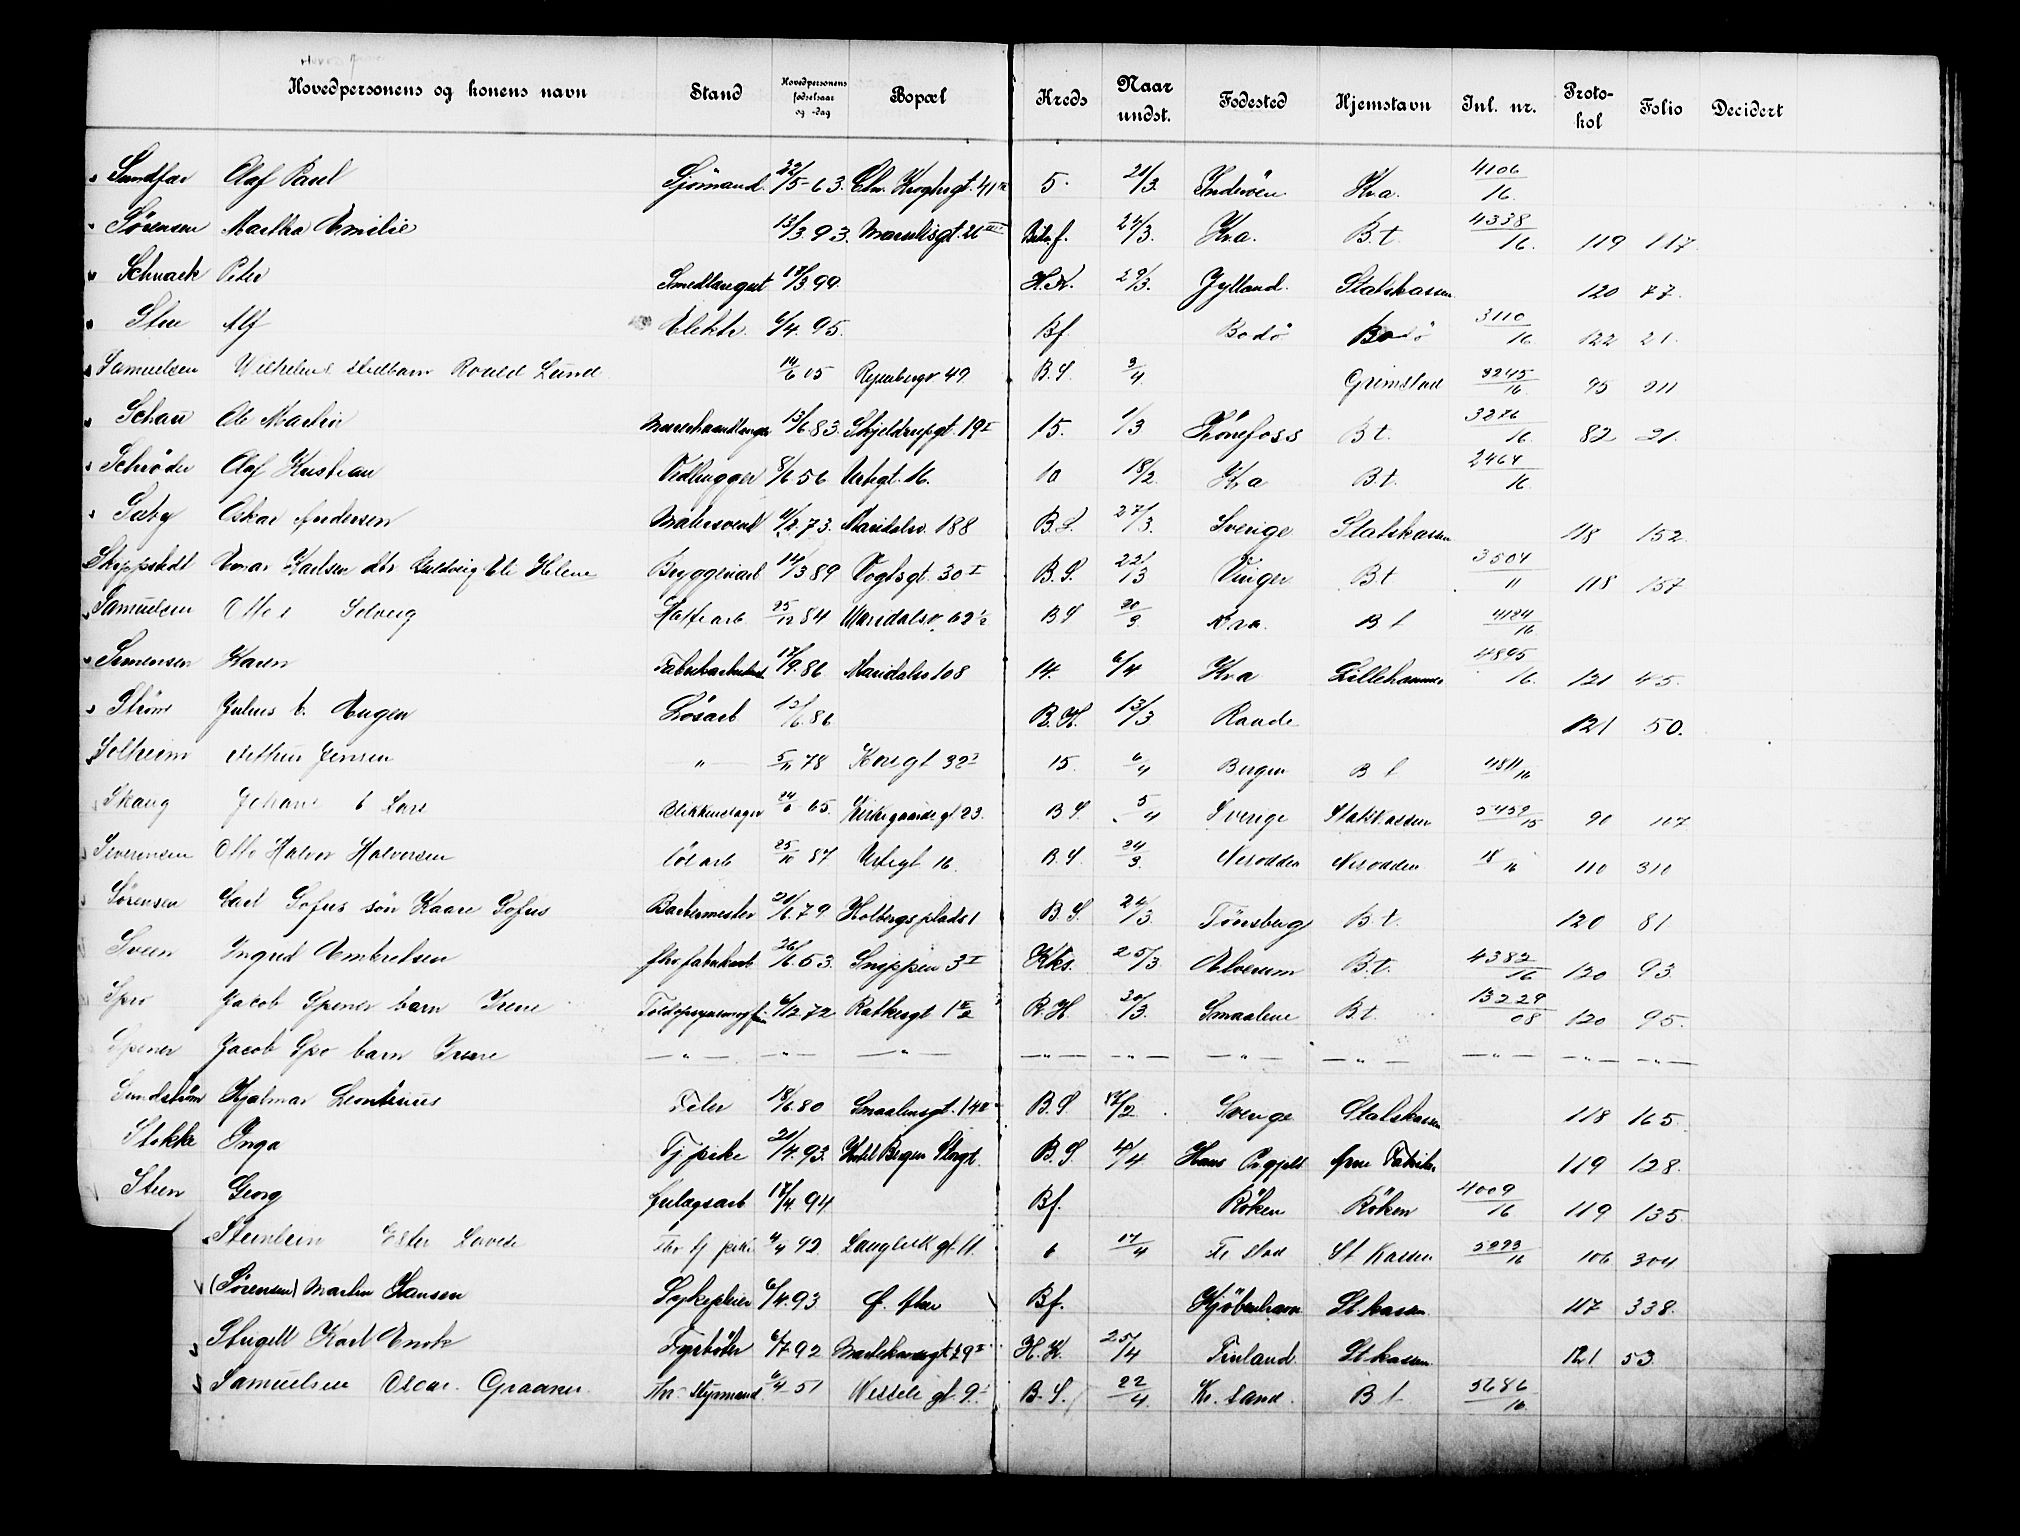 Hovedpersonens og konens navn Stand Hovedpersonens fødselsaar og -dag Bopæl Kreds Naar undst. Fødested Hjemstavn Inl. nr. Protokol Folio Decidert
Sundfær Olaf Paul Sjömand 22/5-63. Chr. Kroghsgt. 41 5. 21/3. Inderöen Kra. 4106/16.
Sörensen Martha Emilie 13/3.93. Maridlsgt. 21 24/3. Kra. B.t. 4338/16. 119 117.
Schnack Peter 3.99. H.K. 29/3. Jylland. Statskassen 120 77.
Stue Alf Elektr. 6/4.95. Bf. Bodö Bodö 3110/16 122 21.
Samuelsen Wilhelm Roald Lund 14/6 15 49. B.S. 3/4 Grimstad 3245/16. 95 211
Schau Ole Martin 13/6.83. Skjeldrupgt. 19 I 15. 1/3 Hönefoss B.t. 3276/16. 82 21.
Schröder Olaf Kristian Vedhugger 8/6 56 Urtegt. 16. 10 18/2. Kra B.t. 2464/16.
Sæby Oskar Andersen Malersvend 4/2.73. Maridalsv. 188 B.S. 27/3. Sverige Statskassen 118 152.
Skippstedt Einar Karlsen Helene Bryggeriarb 14/3 89 Vogtsgt. 30 I B.S. 22/3 Vinger B.t 3504/11 118 157
Samuelsen Otto Solveig 25/12 84 Maridalsv. 62½ B S 20/3. Kra. B t 4124/16
Simensen Karen Fabrikarbeid 17/9.86 Maridalsv 108 14. 6/4 Kra Lillehammer 4895/16. 121 45.
Ström Julius E. Eugen Lösarb 12/6.86 B.H. 13/3 Raade 121 50.
Soltheim Arthur Jensen — " — 5/11 78 Korsgt 32 I 15. 6/4 Bergen B t 4811/16
Skaug Johan Blikkenslager 24/6 65. Kirkegaards gt 23. B S. 5/4 Sverige Statskassen 5459/15 90 107
Severinsen Otto Halvor Halvorsen Lös arb 25/10 87 Urtegt 16. B.S. 24/3. Nesodden Nesodden 18/16 110 310
Sörensen Carl Sofus sön Kaare Sofus Barbermester 21/6.79 Holbergs plads 1 B.S. 24/3. Tönsberg B.t. 120 81.
Sveen Ingrid Embretsen fhv fabrikarb 26/6.53. Snippen 3 I Kks. 25/3 Elverum B.t. 4382/16 120 93.
Spro Jacob Spener barn Irene 6/12 72 Ratkesgt 1 B.H. 30/3. Smaalene B.t. 13229/08 120 95.
Spener Jacob Spro barn Irene — " — — " — — " — — " — — " — — " — — " — — " — — " — — " —
Sundström Hjalmar Leontinius Filer 18/6.80 Smaalensgt. 14 B.S. 17/2. Sverige Statskassen 118 165.
Stokke Inga Tj pike 21/4.93. Hotel Bergen Storgt. B.S. 4/4 Arne Fabriker 119 128.
Steen Georg 17/4.94. Bf. Röken Röken 4009/16 119 135.
Steinbein Ester Lovise Fhv tj pike 4/4 92. Langleik gt 11. 6 17/4 Fr stad St kassen 5393/16 106 304
(Sörensen) Martin Hansen Sykepleier 6/4.93 Bf. Kjöbenhavn St kassen 117 338.
Stugell Karl Enok Fyrböter 6/7.92 29 I H.K. 25/4 Finland St kassen 121 53.
Samuelsen Oscar Graaner Fhv. Styrmand 6/4 51 Wessels gt. 9 I B.S. 22/4. Kr. sand. B t 5686/16